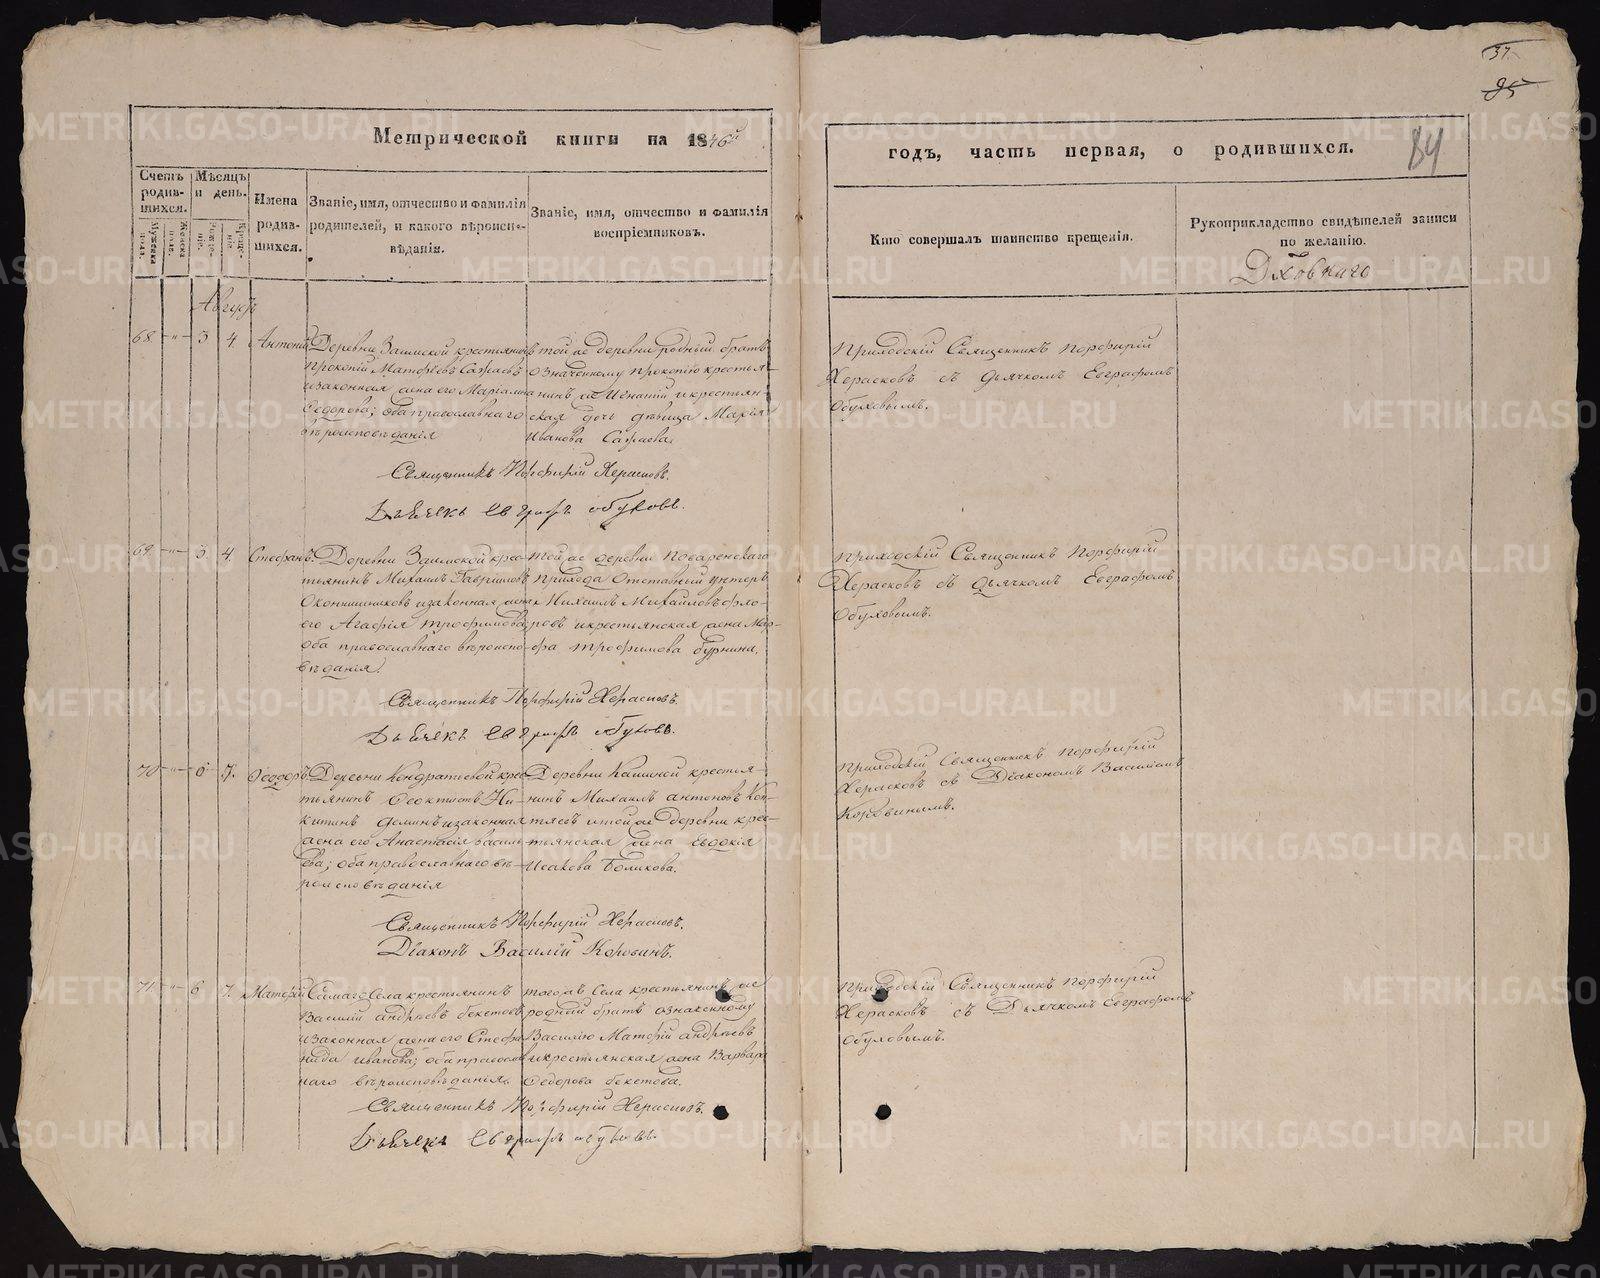 37.
95
84
Метрической книги на 1846й
годъ, часть первая, о родившихся.
Счетъ родив-шихся.
Мѣсяцъ и день.
Имена родив-шихся.
Званіе, имя, отчество и фамилія родителей, и какого вѣроиспо-вѣданія.
Званіе, имя, отчество и фамилія воспріемниковъ.
Кто совершалъ таинство крещенія.
Рукоприкладство свидѣтелей записи по желанію.
Мужеска пола.
Женска пола.
Августъ
68. —"— 3 4. Антоній
Деревни Заимской крестьянинъ
Прокопій Матѳеевъ
и законная жена его Маріамна
Ѳедорова; оба православнаго
вѣроисповѣданія
той же деревни родный братъ
означенному Прокопію крестья-
нинъ Игнатій и крестьян-
ская дочь дѣвица Марія
Иванова
Приходскій Священникъ Порфирій
Херасковъ съ дьячкомъ Евграфомъ
Обуховымъ.
Священникъ Порфирій Херасковъ.
Дьячекъ Евграфъ Обуховъ.
69. —"— 3. 4. Стефанъ.
Деревни Заимской крес-
тьянинъ Михаилъ Гавриловъ
Оконишниковъ и законная жена
его Агафія Трофимова;
оба православнаго вѣроиспо-
вѣданія.
той же деревни
прихода Отставный унтеръ
Михаилъ Михайловъ Фло-
ровъ и крестьянская жена Мар-
фа Трофимова Бурнина.
Приходскій Священникъ Порфирій
Херасковъ съ дьячкомъ Евграфомъ
Обуховымъ.
Священникъ Порфирій Херасковъ.
Дьячекъ Евграфъ Обуховъ.
70 —"— 6 7. Ѳеодоръ
Деревни Кондратьевой крес-
тьянинъ Ѳеоктистъ Ни-
китинъ Деминъ и законная
жена его Анастасія Василь-
ева; оба православнаго вѣ-
роисповѣданія
Деревни Кашиной крестья-
нинъ Михаилъ Антоновъ
и той же деревни крес-
тьянская жена Евдокія
Исакова
Приходскій Священникъ Порфирій
Херасковъ съ Діакономъ Василіемъ
Коровинымъ.
Священникъ Порфирій Херасковъ.
Діаконъ Василій Коровинъ.
71. —"— 6 7. Матѳій
Самаго Села крестьянинъ
Василій Андреевъ Бекетовъ
и законная жена его Стефа-
нида Иванова; оба православ-
наго вѣроисповѣданія.
того же Села крестьянинъ
родный братъ означенному
Василію Матѳій Андреевъ
и крестьянская жена Варвара
Ѳедорова Бекетова.
Приходскій Священникъ Порфирій
Херасковъ съ Дьячкомъ Евграфомъ
Обуховымъ.
Священникъ Порфирій Херасковъ.
Дьячекъ Евграфъ Обуховъ.
METRIKI.GASO-URAL.RU